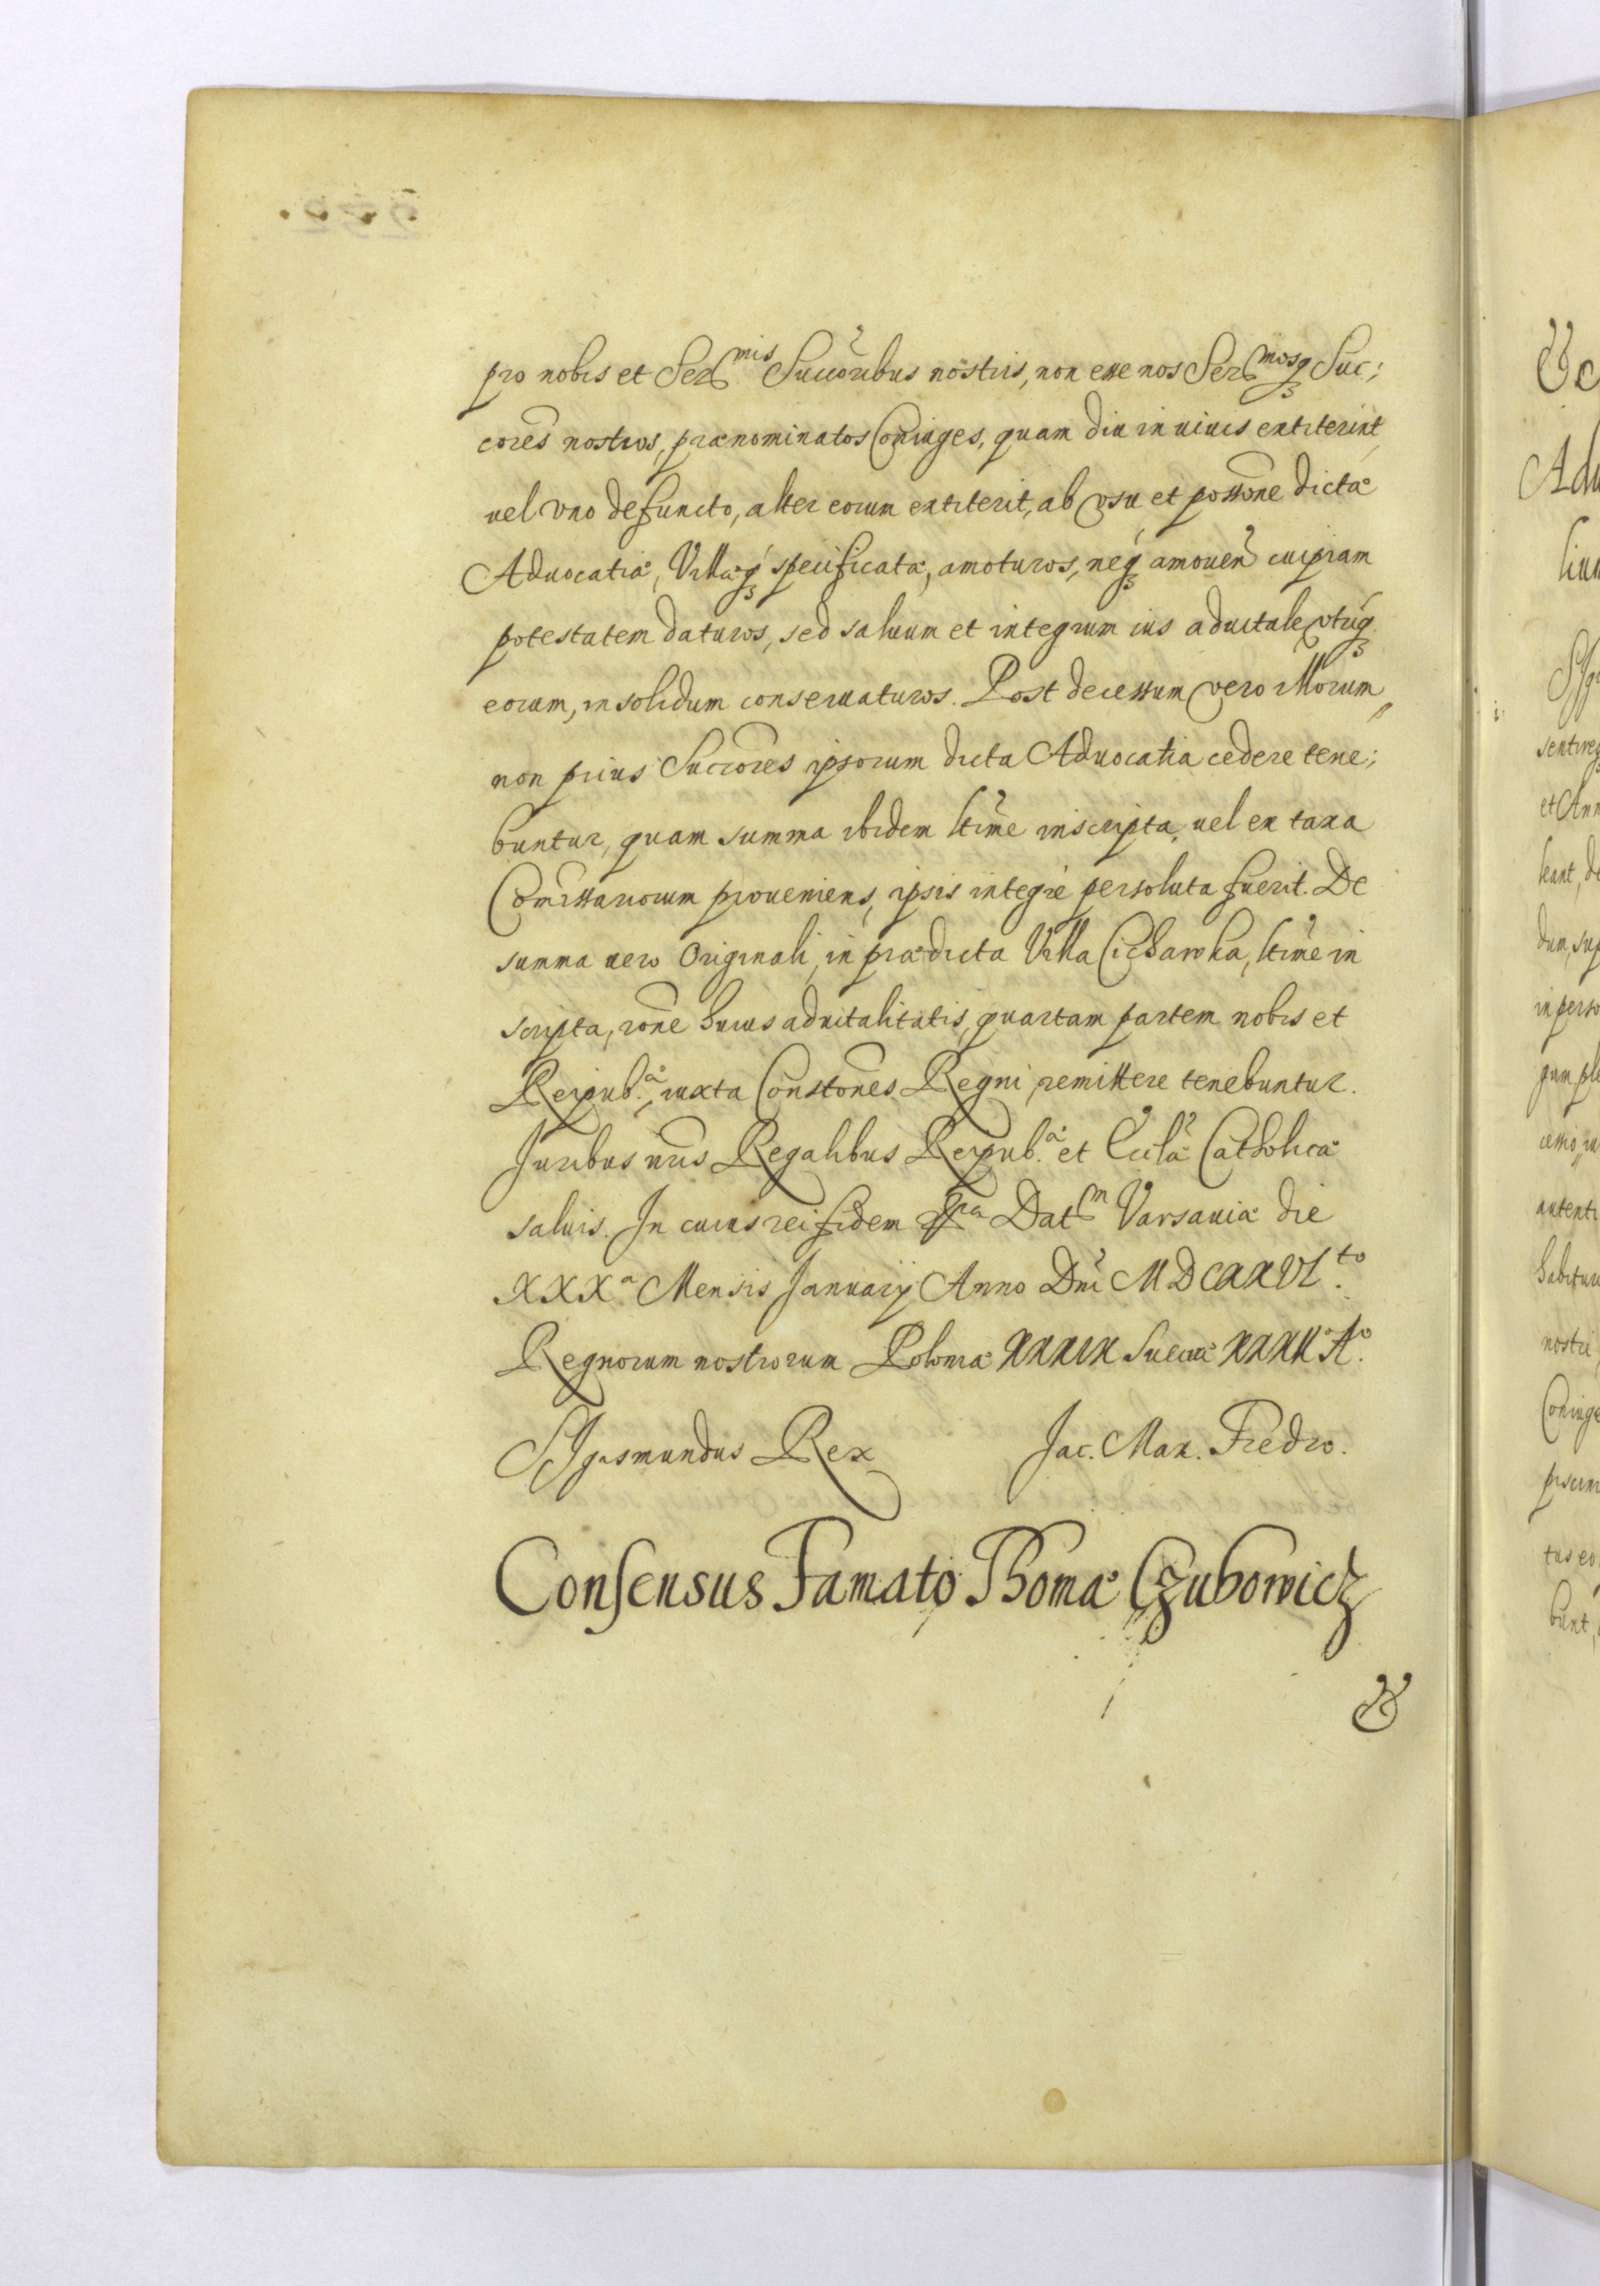 pro nobis et Ser^mis Succoribus nostris, non esse nos Ser^mosq₃ Suc;
cores nostros, prænominatos Coniuges, quam diu in uiuis extiterint
uel vno defuncto, alter eorum extiterit, ab vsu et possone dictæ
Aduocatiæ, Villæq₃ specificatæ, amoturos, neq₃ amouen cuipiam
potestatem daturos, sed saluum et integrum ius aduitale vtriq₃
eorum, in solidum conseruaturos. Post decessum vero illorum
non prius Succores ipsorum dicta Aduocatia cedere tene;
buntur, quam summa ibidem ltime inscripta, uel ex taxa
Comissariorum proueniens, ipsis integre persoluta fuerit. De
summa uero Originali, in prædicta Villa Cichawka, ltime in
scripta, rone huius aduitalitatis, quartam partem nobis et
Reipub.æ, iuxta Constones Regni, remittere tenebuntur.
Juribus nris Regalibus Reipub.æ et Eccl&aelig; Catholicæ
saluis. In cuius rei fidem Dat^m Varsauiæ die
XXX^a Mensis Januarij Anno Dni MDCXXVI^to.
Regnorum nostrorum Poloniæ XXXIX Sueciæ XXXII A^o.
Sigismundus Rex Jac. Max. Fredro.
Consensus Famato Thomæ Czubowicz
&